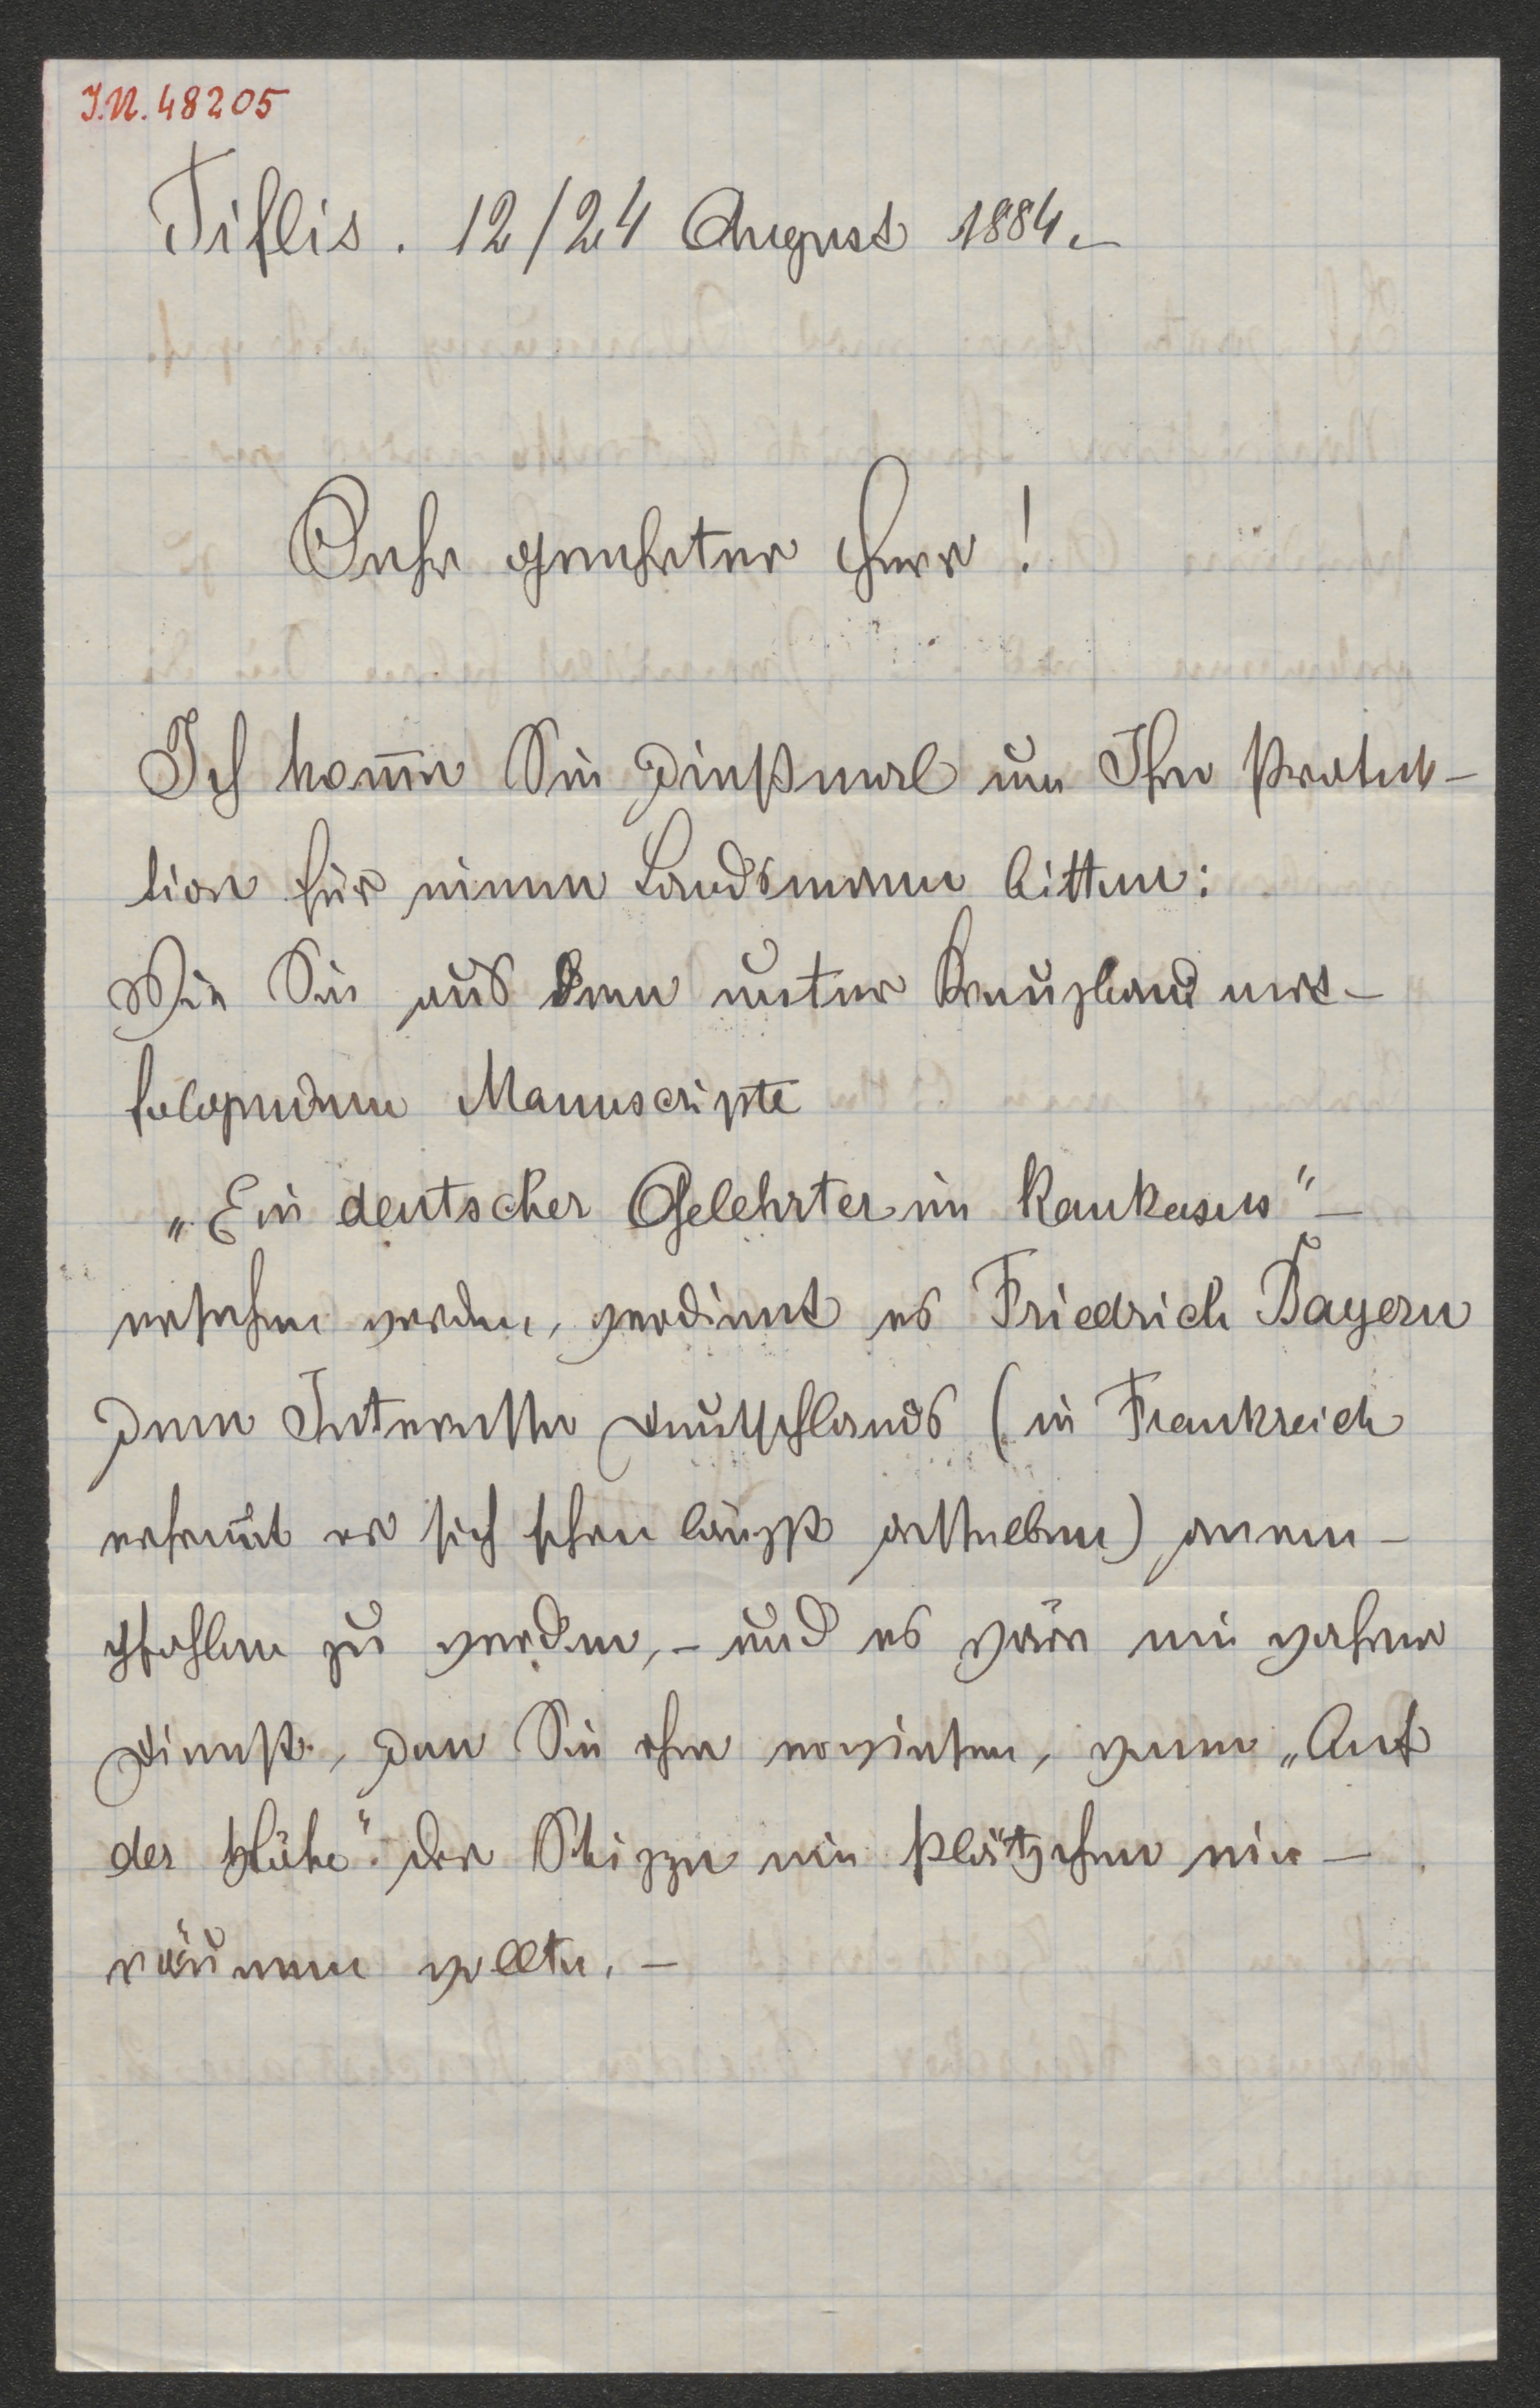 I.N. 48205
Tiflis. 12/24 August 1884.–
Sehr geehrter Herr!
Ich komme Sie dießmal um Ihre Protek–
tion für einen Landsmann bitten:
Wie Sie aus dem unter Kreuzband nach–
folgenden Manuscripte
„Ein deutscher Gelehrter im Kaukasus" –
ersehen werden, verdient es Friedrich Bayern
dem Interesse Deutschlands (in Frankreich
erfreut er sich schon längst desselben) anem–
pfohlen zu werden, – und es wäre ein wahrer
Dienst, den Sie ihm erwiesen, wenn „Auf
der Höhe" der Skizze ein Plätzchen ein–
räumen wollte. –